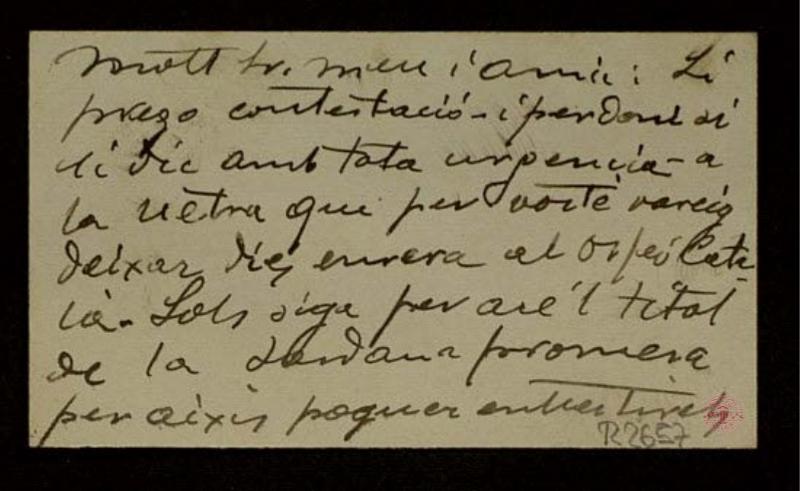 Molt Sr. meu i amic: Li
prego contestació - i perdoni si
li dic amb tota urgencia - a
la lletra que per vostè vareig
deixar dies enrera al Orfeó Cata-
là. Sols siga per are 'l títol
de la sardana promera
per aixís poguer entestirels
R 2657